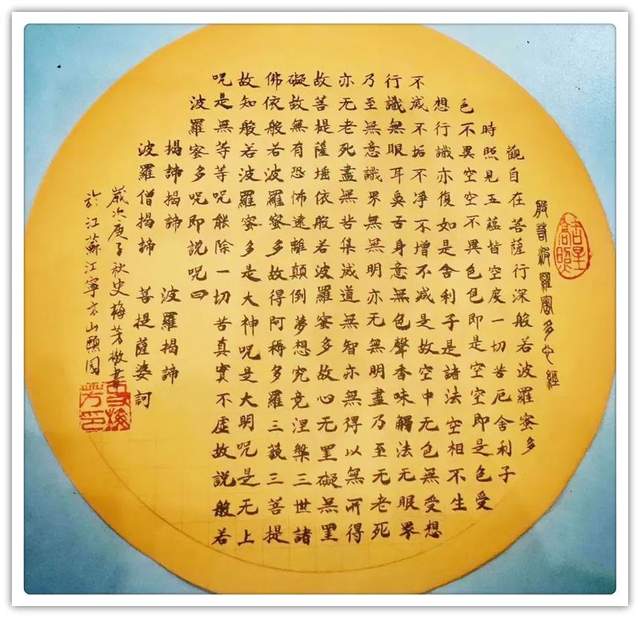 般若波羅蜜多心經
吉星高照
觀自在菩薩行深般若波羅蜜多
時照見五蘊皆空度一切苦厄舍利子
色不異空空不異色色即是空空即是色受
想行識亦復如是舍利子是諸法空相不生
不滅不垢不淨不增不減是故空中无色無受想
行識無眼耳鼻舌身意無色聲香味觸法无眼界
乃至無意識界無無明亦无無明盡乃至无老死
亦无老死盡無苦集滅道無智亦無得以無所得
故菩提薩埵依般若波羅蜜多故心无罣礙無罣
礙故無有恐怖遠離顛倒夢想究竟涅槃三世諸
佛依般若波羅蜜多故得阿耨多羅三藐三菩提
故知般若波羅蜜多是大神呪是大明呪是无上
呪是無等等呪能除一切苦真實不虛故説般若
波羅蜜多呪即説呪曰
揭諦揭諦 波羅揭諦
波羅僧揭諦 菩提薩婆訶
歲次庚子秋史梅芳敬書
於江蘇江寧方山頤園
史梅芳印